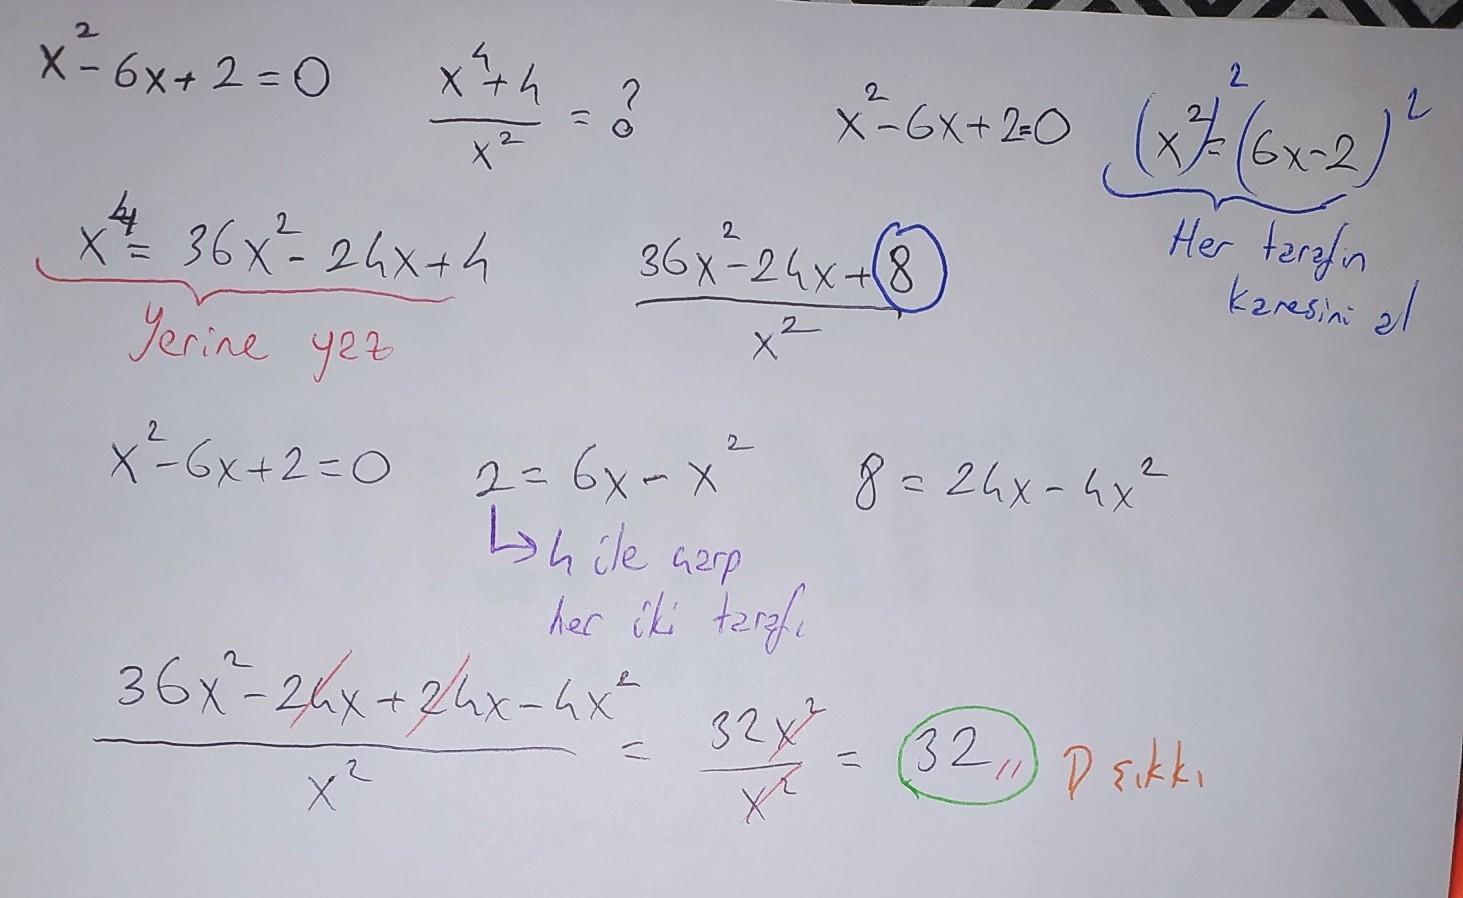 x²-6x+2=0 (x⁴+4)/x² = ?
x²-6x+2=0 (x²)²=(6x-2)²
Her tarafın
karesini al
x⁴=36x²-24x+4
Yerine yaz
(36x²-24x+8)/x²
x²-6x+2=0 2=6x-x² 8=24x-4x²
↳4 ile çarp
her iki tarafı
(36x²-24x+24x-4x²)/x² = 32x²/x² = 32,, D şıkkı